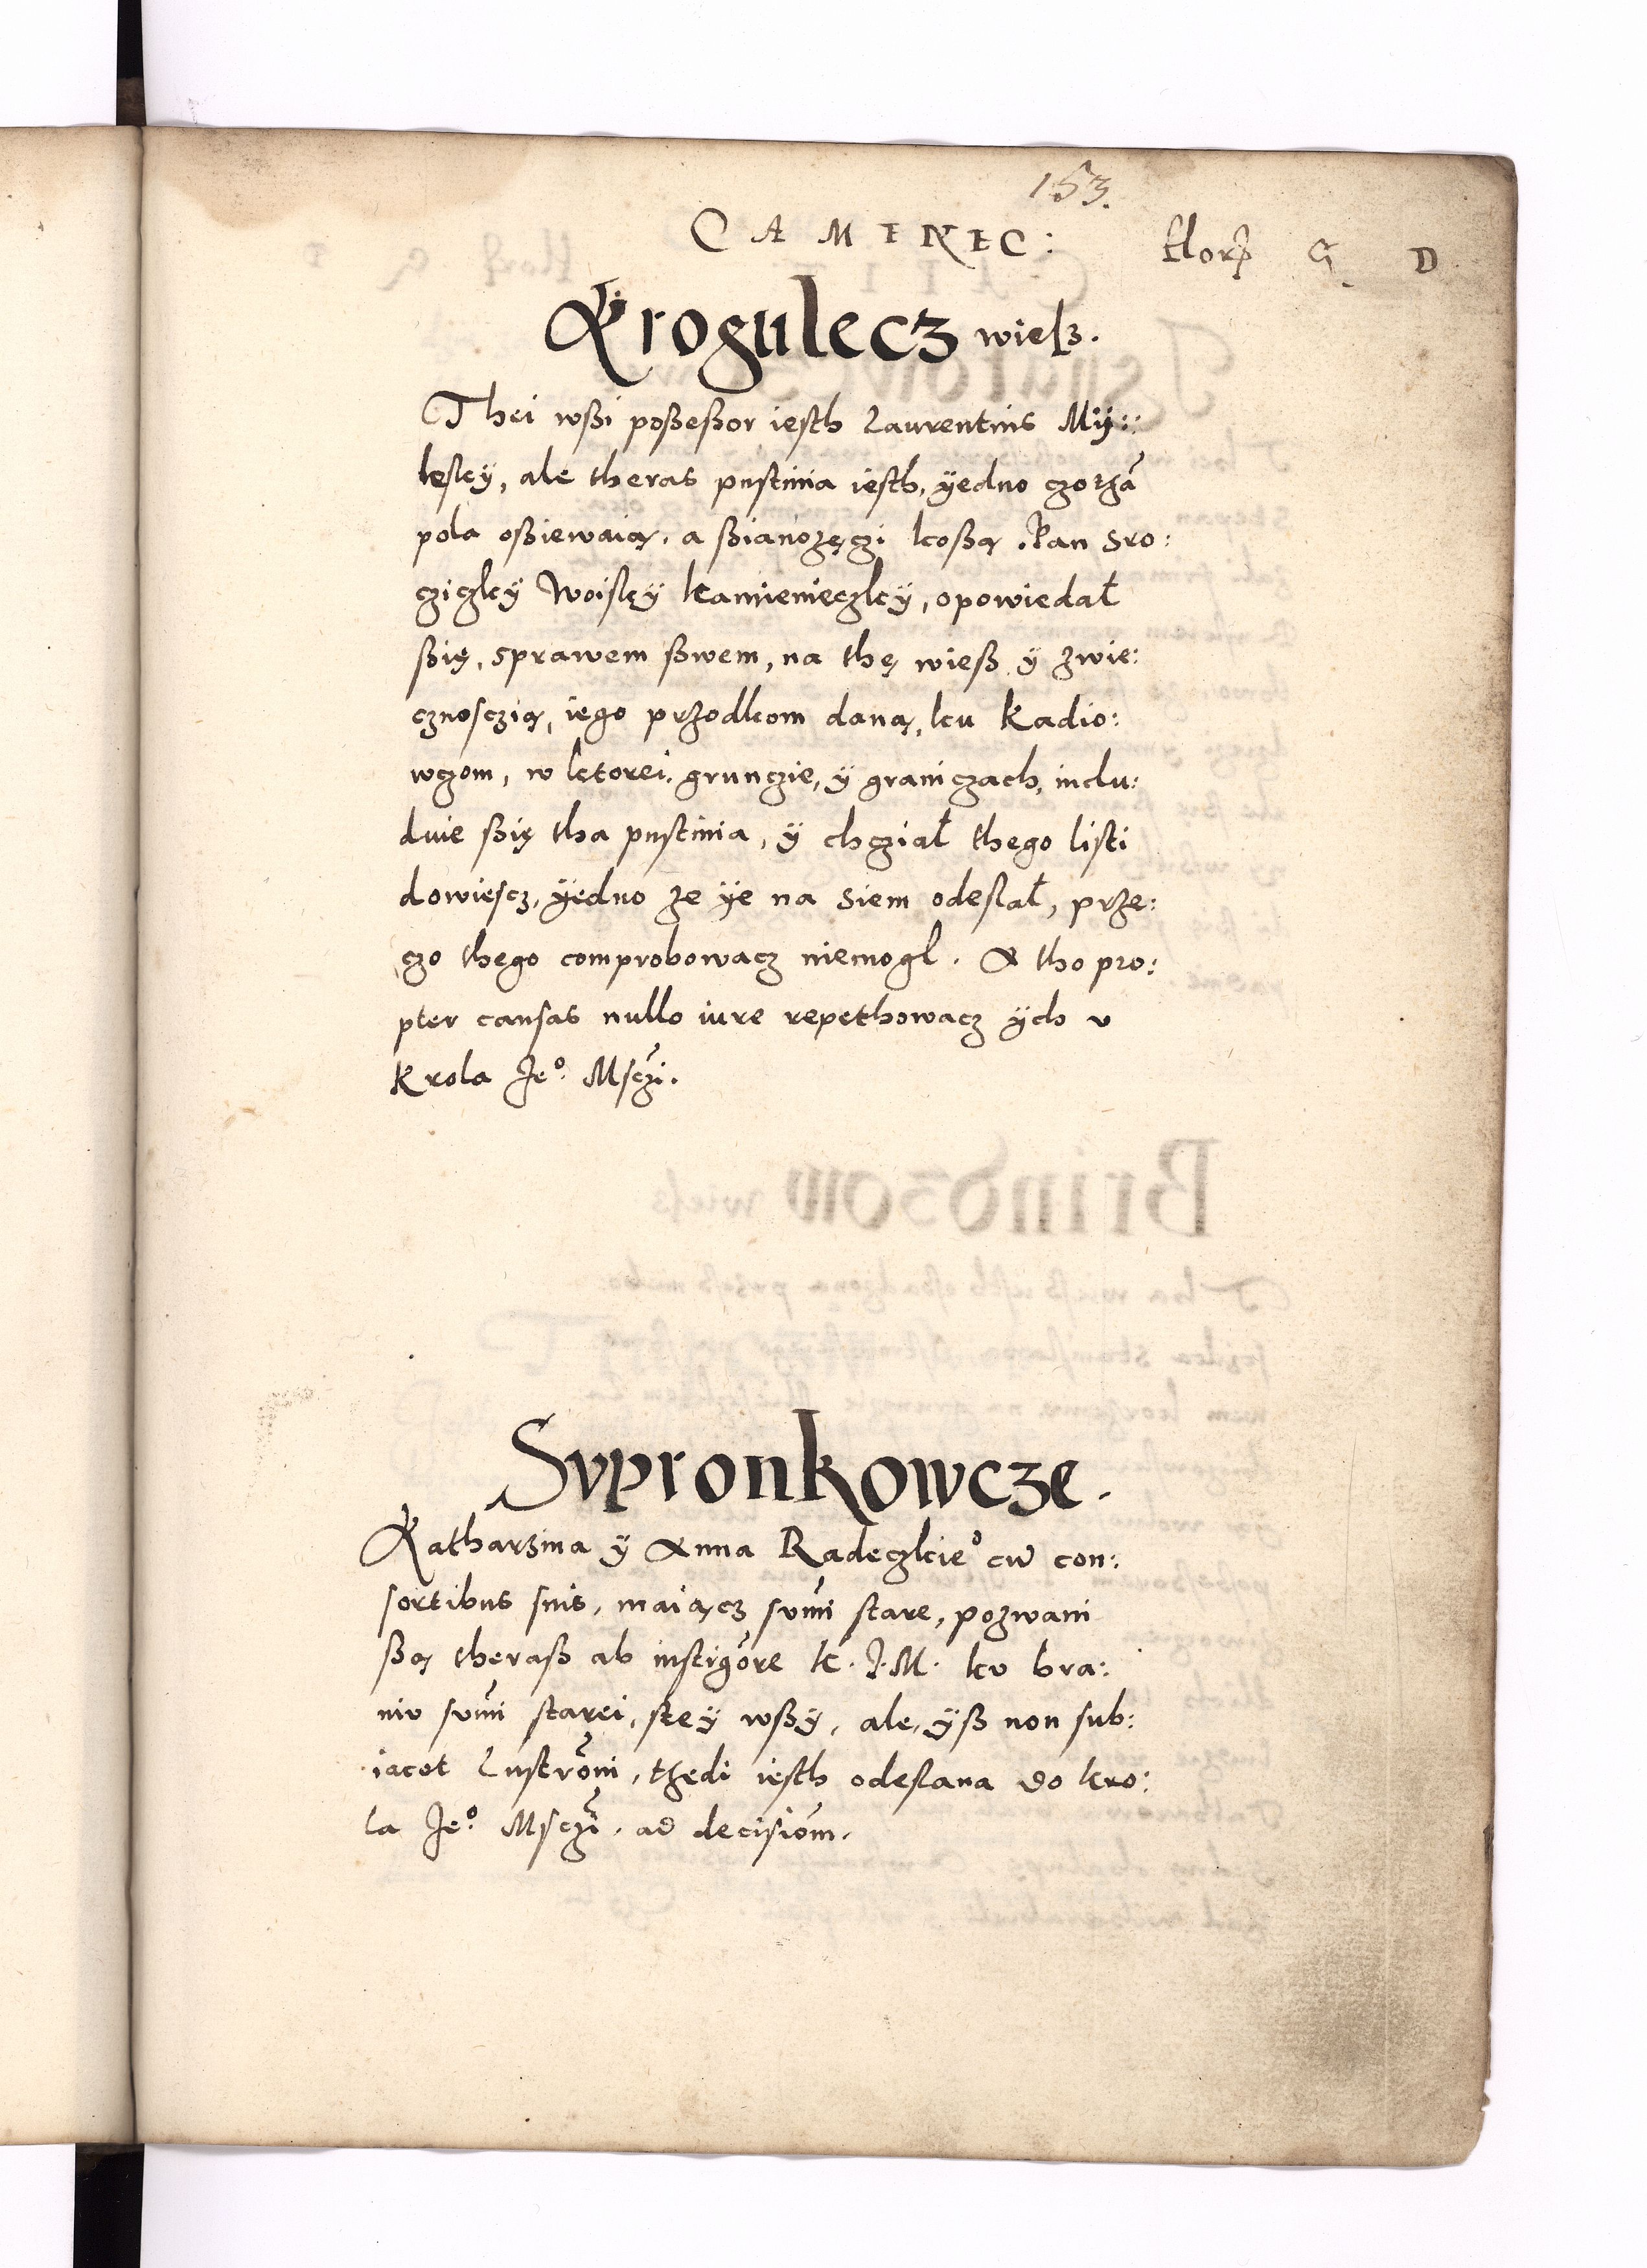 153.
CAMENEC: flor₽ G D
Krogulecz wieß.
Thei wßi poßeßor iesth Laurentius Mÿ::
leskÿ, ale theras pustinia iesth, ÿedno czorzã
pola oßiewaią, a ßianożęczi koßą. Pan Sro:
cziczkÿ Woiskÿ kamienieczkÿ, opowiedał
ßię, sprawem ßwem, na thę wieß ÿ zwie:
cznosczią, iego przodkom daną, ku Kadio:
wczom, w ktorei, grunczie, ÿ graniczach, inclu:
duie ßię tha pustinia, ÿ chcział thego listi
dowiescz, ÿedno że ÿe na Siem odesłał, prze:
czo thego comprobowacz niemogl. A tho pro:
pter causas nullo iure repethowacz ÿch v
Krola Je° Msczi.
Svpronkowcze.
Katharzina ÿ Anna Radeczkie cũ con:
sortibus suis, maiącz sum̃i stare, pozwani
ßą theraß ab instigõre K. J. M. ku bra:
niu sum̃i starei, stey wßÿ, ale, ÿß non sub:
iacet Lustrõni, thedi iesth odeslana do kro:
la Je° Msczi. ad decisiom̃.